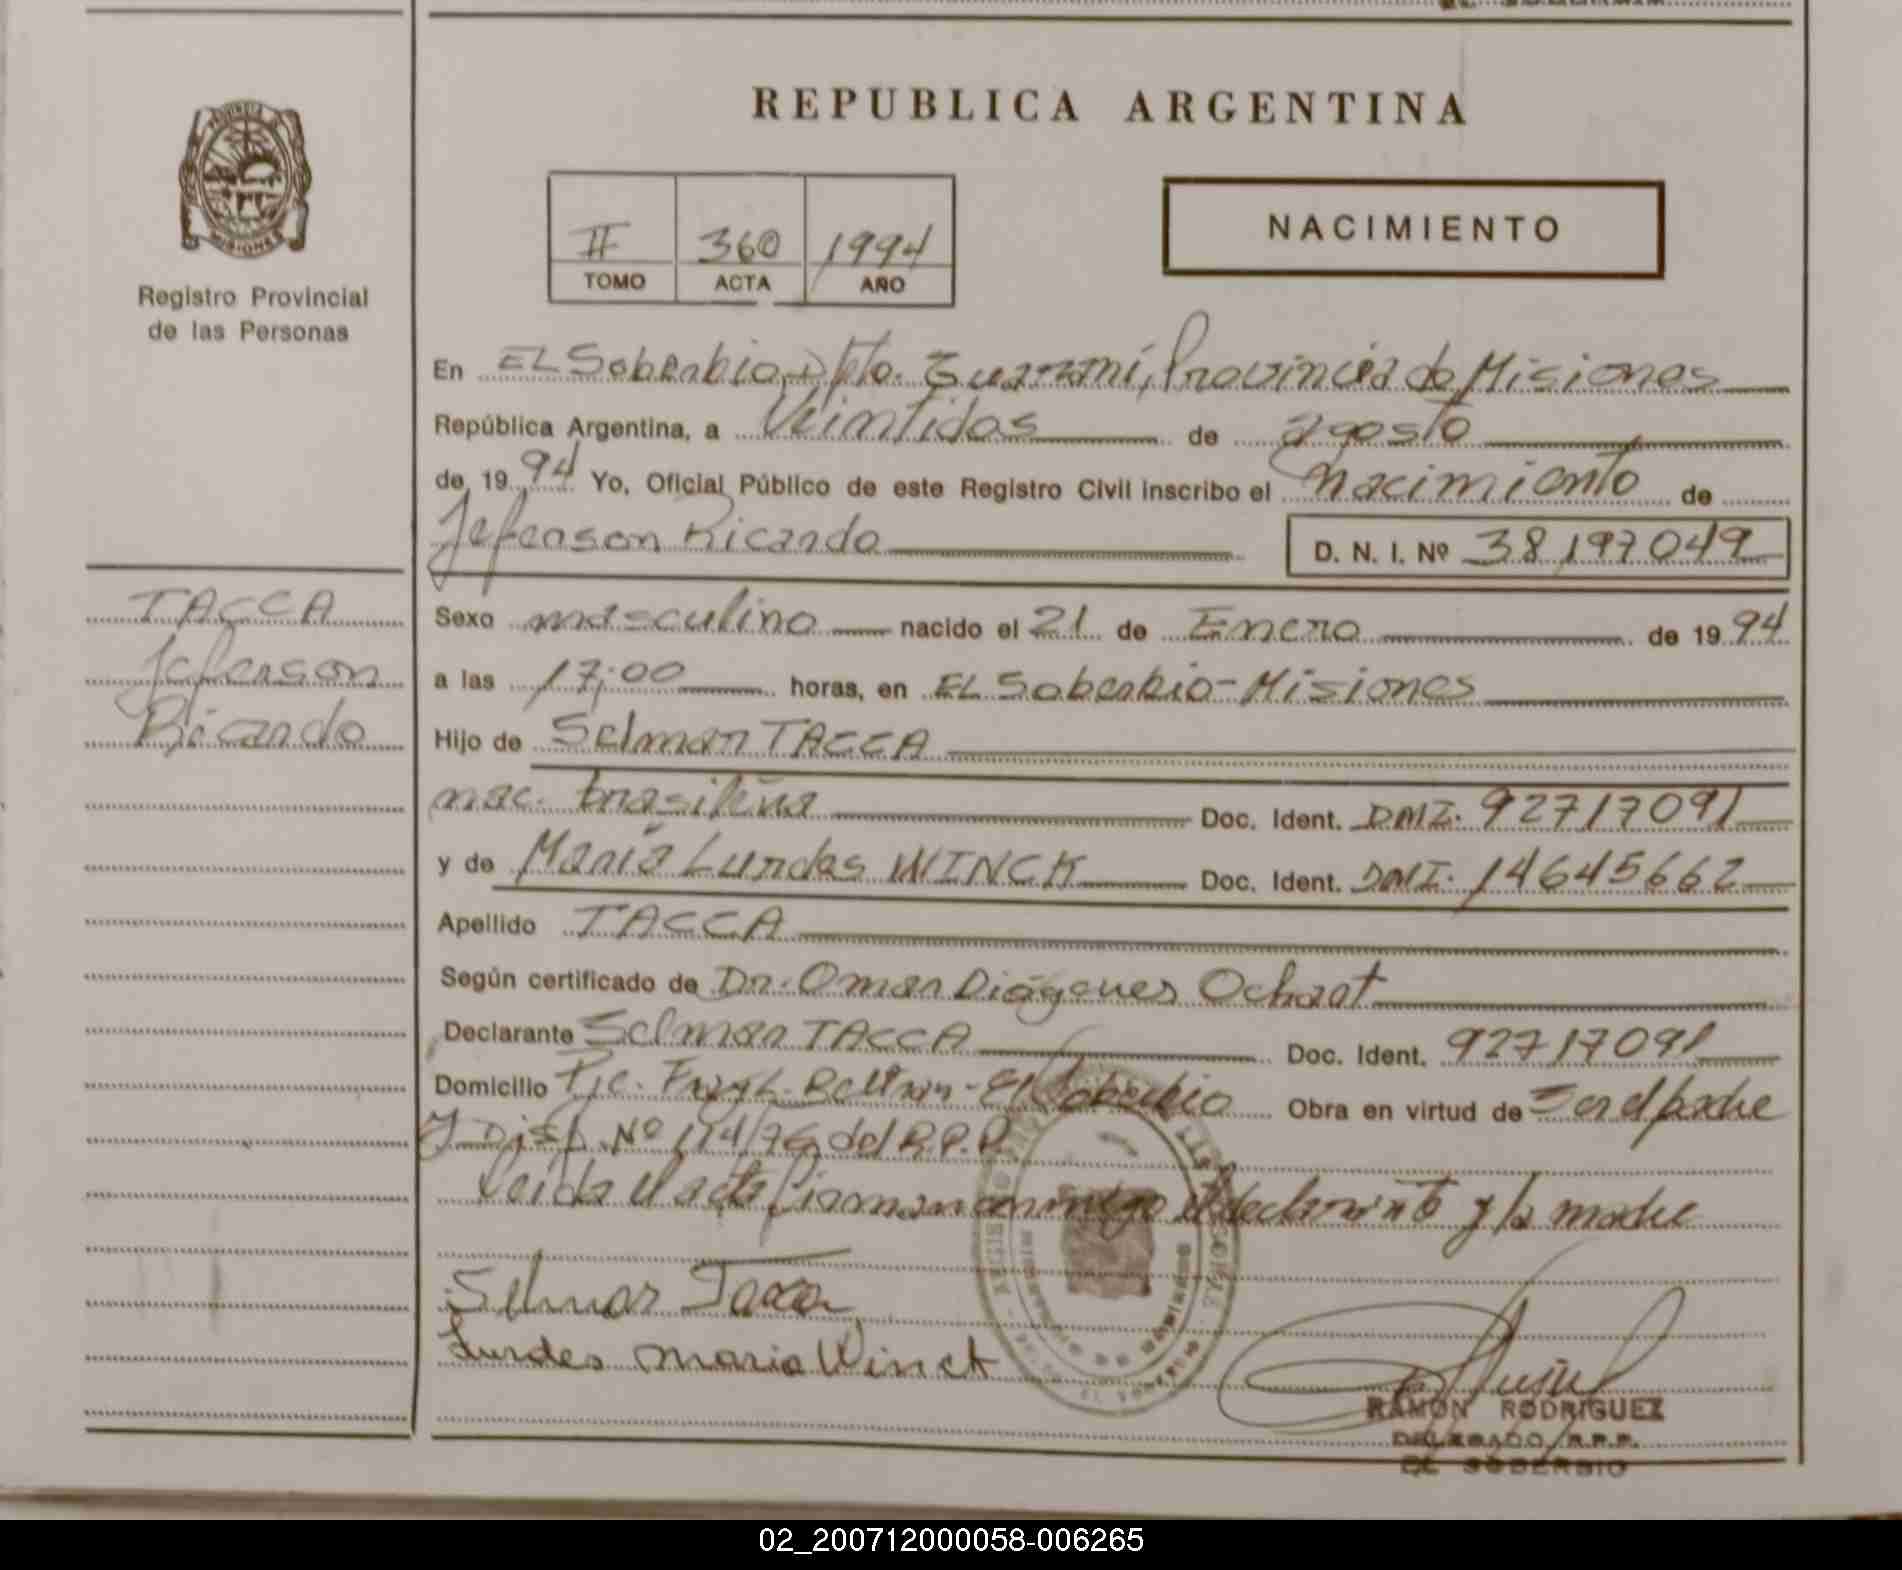 REPUBLICA ARGENTINA
PROVINCIA
MISIONES
Registro Provincial
de las Personas
II 360 1994
TOMO ACTA AÑO
NACIMIENTO
En EL Soberbio, Dpto. Guaraní, Provincia de Misiones
República Argentina, a Veintidos de agosto
de 1994 Yo, Oficial Público de este Registro Civil inscribo el nacimiento de
Jeferson Ricardo D. N. I. Nº 38,197049
TACCA
Jeferson
Ricardo
Sexo masculino nacido el 21 de Enero de 1994
a las 17:00 horas, en EL Soberbio-Misiones
Hijo de Selmar TACCA
nac. brasileña Doc. Ident. DNI. 92717091
y de María Lurdes WINCK Doc. Ident. DNI. 14645662
Apellido TACCA
Según certificado de Dr. Omar Diógenes Ochart
Declarante Selmar TACCA Doc. Ident. 92717091
Domicilio Pje. Fray L. Beltran-El Soberbio Obra en virtud de Ser el padre
y Disp. Nº 114/76 del R.P.P.
leída el acta firman conmigo el declarante y la madre
Selmar Tacca
Lurdes Maria Winck
RAMON RODRIGUEZ
DELEGADO R.P.P.
EL SOBERBIO
02_200712000058-006265